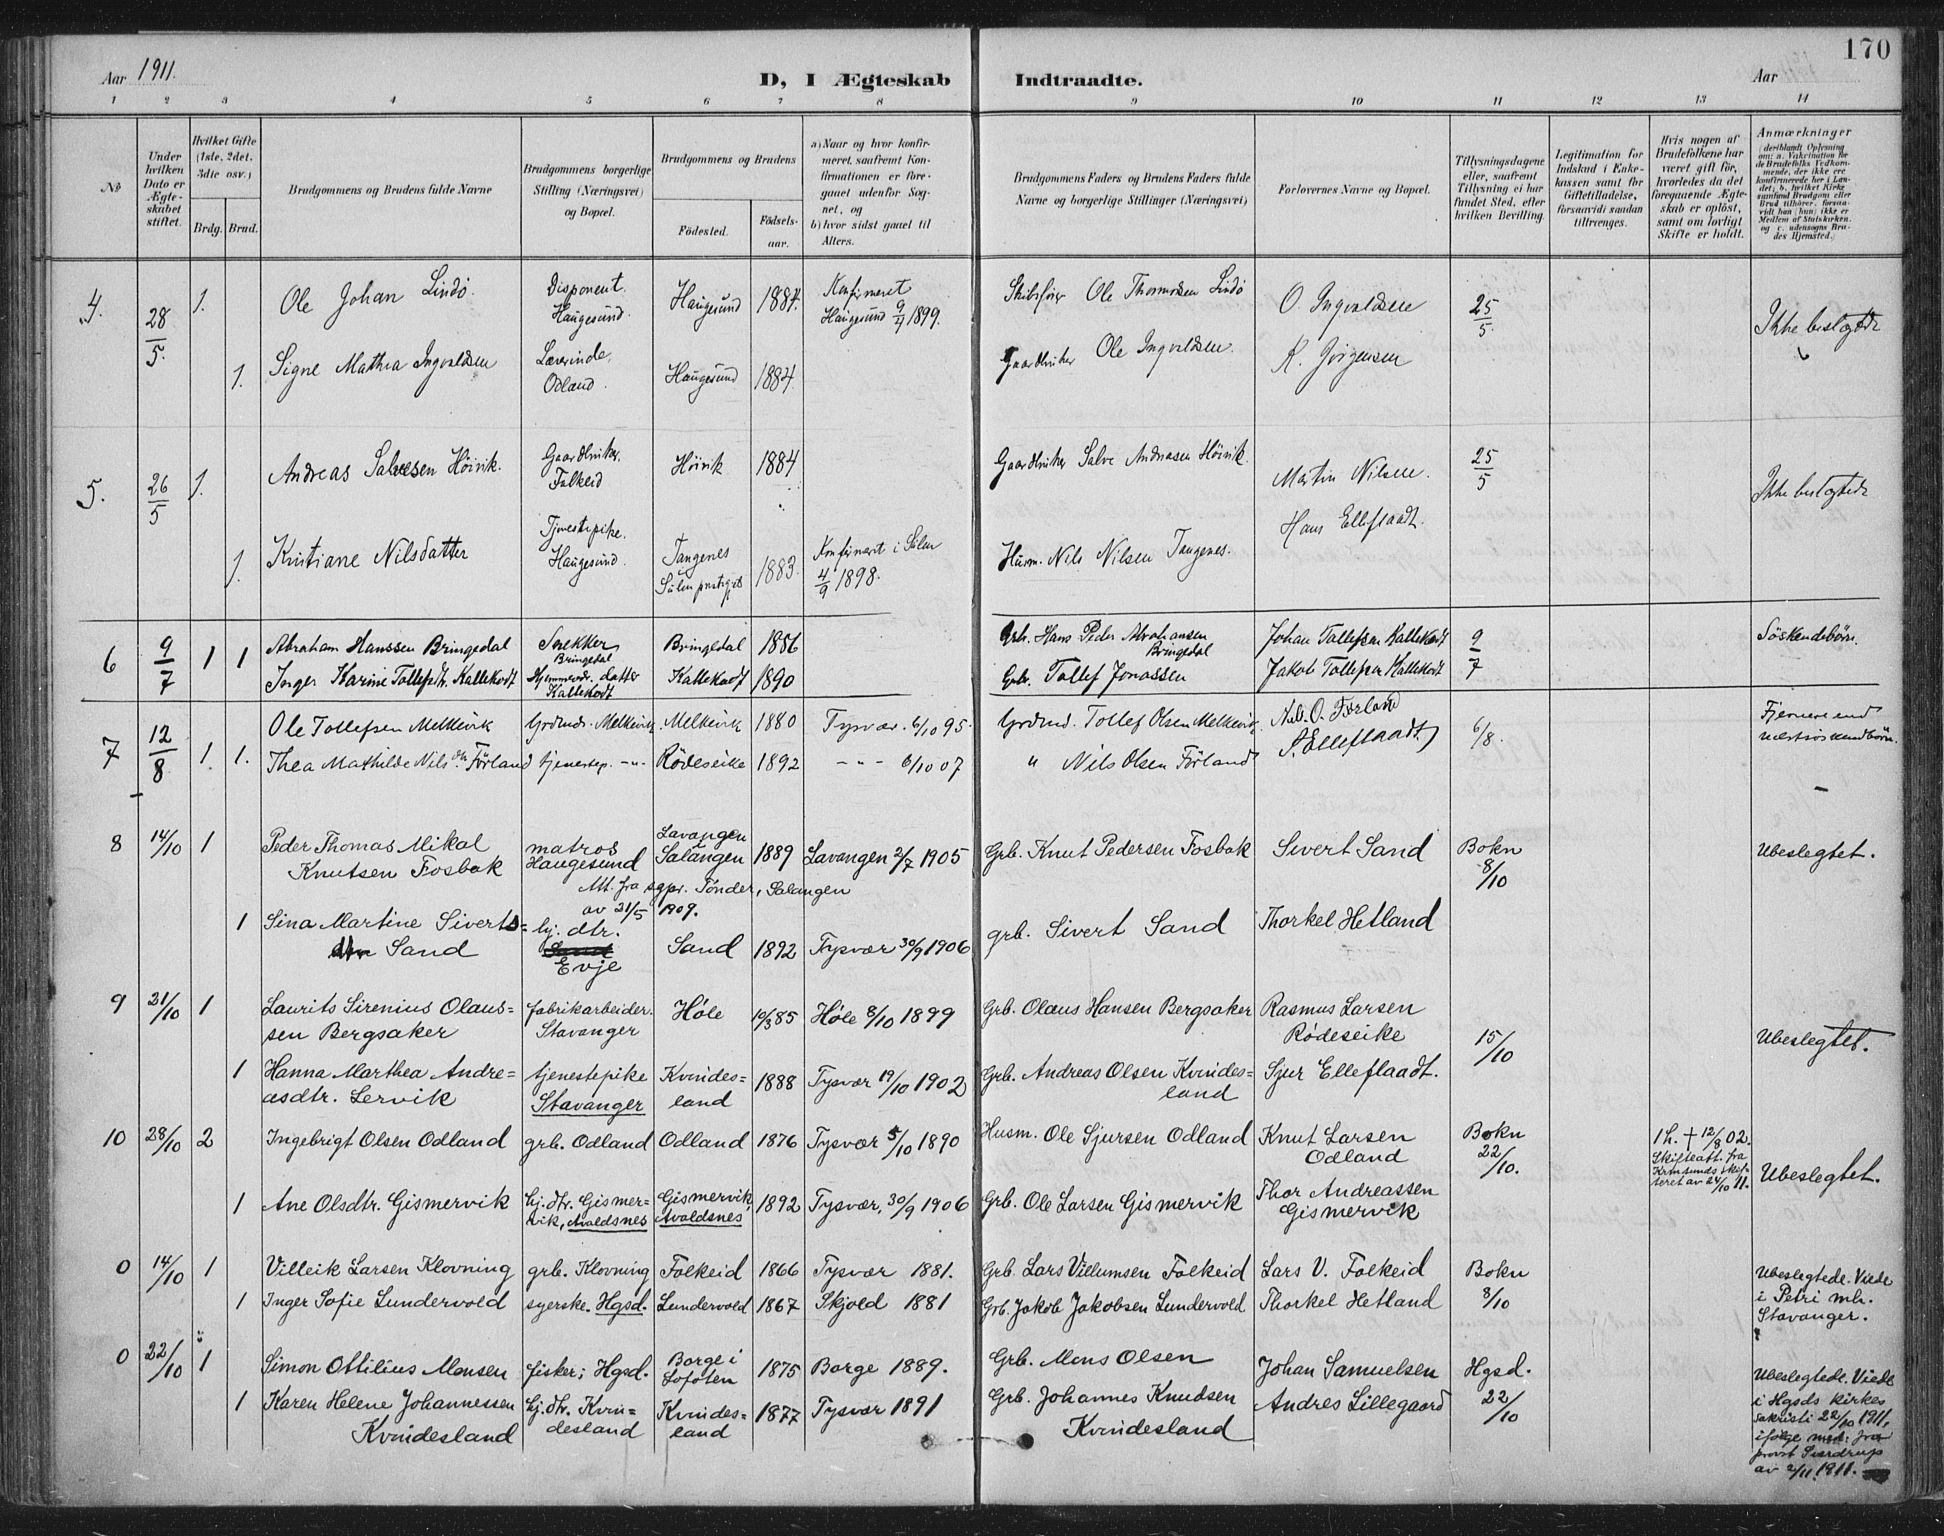 170
Aar 1911.
D, I Ægteskab Indtraadte.
Aar
1 2 3 4 5 6 7 8 9 10 11 12 13 14
No
Under hvilken Dato er Ægteskabet stiftet.
Hvilket Gifte (1ste, 2det, 3die osv.)
Brdg. Brud.
Brudgommens og Brudens fulde Navne
Brudgommens borgerlige Stilling (Næringsvei) og Bopæl.
Brudgommens og Brudens
Födested.
Födselsaar.
a) Naar og hvor konfirmeret, saafremt Konfirmationen er foregaaet udenför Sognet, og
b) hvor sidst gaaet til Alters.
Brudgommens Faders og Brudens Faders fulde Navne og borgerlige Stillinger (Næringsvei)
Forlovernes Navne og Bopæl.
Tillysningsdagene eller, saafremt Tillysning ei har fundet Sted, efter hvilken Bevilling.
Legitimation for Indskud i Enkekassen samt for Giftetilladelse, forsaavidt saadan tiltrænges.
Hvis nogen af Brudefolkene har været gift för, hvorledes da det foregaaende Ægteskab er oplöst, samt om lovligt Skifte er holdt.
Anmærkninger
4. 28/5. 1. Ole Johan Lindö. Disponent. Haugesund. Haugesund 1884. Konfirmeret Haugesund 9/4 1899. Skibsförer Ole Thomassen Lindö O. Ingvaldsen 25/5. Ikke beslegtede
1. Signe Mathea Ingvaldsen Lærerinde, Odland. Haugesund 1884 Gaardbruker Ole Ingvaldsen. K. Jörgensen
5. 26/5 1. Andreas Salvesen Höivik. Gaardbruker, Falkeid Höivik 1884 Gaardbruker Salve Andreasen Höivik. Martin Nilsen. 25/5 Ikke beslegtede
1. Kristiane Nilsdatter Tjenestepike. Haugesund. Tangenes 1883. Konfirmeret i 4/9 1898. Husm. Nils Nilsen Tangenes. Hans Elleflaadt.
6 9/7 1 1 Abraham Hanssen Bringedal Snekker Bringedal Bringedal 1886 Grb. Hans Peder Abrahamsen Bringedal Johan Tollefsen Kallekodt 9/7 Söskendebörn.
Inger Karine Tollefsdtr. Kallekodt Hjemmevr. datter Kallekodt Kallekodt 1890 Grb. Tollef Jonassen Jakob Tollefsen Kallekodt
7 12/8 1. 1. Ole Tollefsen Melkevik Grdmd. Melkevik. Melkevik 1880 Tysvær. 6/10 95. Grdmd. Tollef Olsen Melkevik. O. Förland 6/8. Fjernere end næstsöskendbörn.
Thea Mathilde Nilsdtr. Förland tjenestep. -"- Rödeseike 1892 - " - 6/10 07 " Nils Olsen Förland S. Elleflaadt
8 14/10 1 Peder Thomas Mikal Knutsen Fosbak matros Haugesund Lavangen Salangen 1889 Lavangen 2/7 1905 Grb. Knut Pedersen Fosbak Sivert Sand Bokn 8/10 Ubeslegtet.
Att. fra sgpr. Tönder, Salangen av 21/5 1909.
1 Sina Martine Siverts= dtr Sand hj. dtr. Sand Evje Sand 1892 Tysvær 30/9 1906 grb. Sivert Sand Thorkel Hetland
9 21/10 1 Laurits Sirenius Olaus= sen Bergsaker fabrikarbeider. Stavanger Höle 10/3 85 Höle 8/10 1899 Grb. Olaus Hansen Bergsaker Rasmus Larsen Rödeseike 15/10 Ubeslegtet.
1 Hanna Marthea Andre= asdtr. Lervik tjenestepike Stavanger Kvindes= land 1888 Tysvær 19/10 1902 Grb. Andreas Olsen Kvindes= land Sjur Elleflaadt.
10 28/10 2 Ingebrigt Olsen Odland grb. Odland Odland 1876 Tysvær 5/10 1890 Husm. Ole Sjursen Odland Knut Larsen Odland Bokn 22/10. 1 h. † 12/8 02. Skifteatt. fra av 24/10 11. Ubeslegtet.
1 Ane Olsdtr. Gismervik hj. dtr. Gismer= vik, Avaldsnes Gismervik, Avaldsnes 1892 Tysvær, 30/9 1906 Grb. Ole Larsen Gismervik Thor Andreassen Gismervik
0 14/10 1 Villeik Larsen Klovning grb. Klovning Falkeid 1866 Tysvær 1881. Grb. Lars Villumsen Falkeid Lars V. Falkeid Bokn 8/10 Ubeslegtede. Viede i Petri mh. Stavanger.
1 Inger Sofie Lundervold syerske. Hgsd. Lundervold 1867 Skjold 1881 Grb. Jakob Jakobsen Lundervold Thorkel Hetland
0 22/10 1 Simon Ottilius Monsen fisker; Hgsd. Borge i Lofoten 1875 Borge 1889. Grb. Mons Olsen Johan Samuelsen Hgsd. 22/10 Ubeslegtede. Viede i Hgsds kirkes sakristi 22/10 1911, ifölge med. fra provst Sverdrup av 2/11. 1911.
1 Karen Helene Johannessen Kvindesland hj. dtr. Kvin= desland Kvindes= land 1877 Tysvær 1891 Grb. Johannes Knudsen Kvindesland Andres Lillegaard